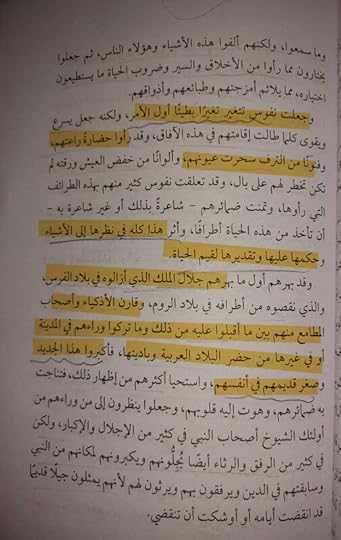 وما سمعوا، ولكنهم ألفوا هذه الأشياء وهؤلاء الناس، ثم جعلوا
يختارون مما رأوا من الأخلاق والسير وضروب الحياة ما يستطيعون
اختياره، مما يلائم أمزجتهم وطبائعهم وأذواقهم.
وجعلت نفوس تتغير تغيرًا بطيئًا أول الأمر، ولكنه جعل يسرع
ويقوى كلما طالت إقامتهم في هذه الآفاق، وقد رأوا حضارة راعتهم،
وفنونًا من الترف سحرت عيونهم، وألوانًا من خفض العيش ورقته لم
تكن تخطر لهم على بال، وقد تعلقت نفوس كثير منهم بهذه الطرائف
التي رأوها، وتمنت ضمائرهم – شاعرة بذلك أو غير شاعرة به –
أن تأخذ من هذه الحياة أطرافًا، وأثر هذا كله في نظرها إلى الأشياء
وحكمها عليها وتقديرها لقيم الحياة.
وقد بهرهم أول ما بهرهم جلال الملك الذي أزالوه في بلاد الفرس،
والذي نقصوه من أطرافه في بلاد الروم، وقارن الأذكياء وأصحاب
المطامع منهم بين ما أقبلوا عليه من ذلك وما تركوا وراءهم في المدينة
أو في غيرها من حضر البلاد العربية وباديتها، فأكبروا هذا الجديد
وصغر قديمهم في أنفسهم، واستحيا أكثرهم من إظهار ذلك، فتناجت
به ضمائرهم، وهوت إليه قلوبهم، وجعلوا ينظرون إلى من وراءهم من
أولئك الشيوخ أصحاب النبي في كثير من الإجلال والإكبار، ولكن
في كثير من الرفق والرثاء أيضًا يُجِلُّونهم ويكبرونهم لمكانهم من النبي
وسابقتهم في الدين ويرفقون بهم ويرثون لهم لأنهم يمثلون جيلًا قديمًا
قد انقضت أيامه أو أوشكت أن تنقضي.